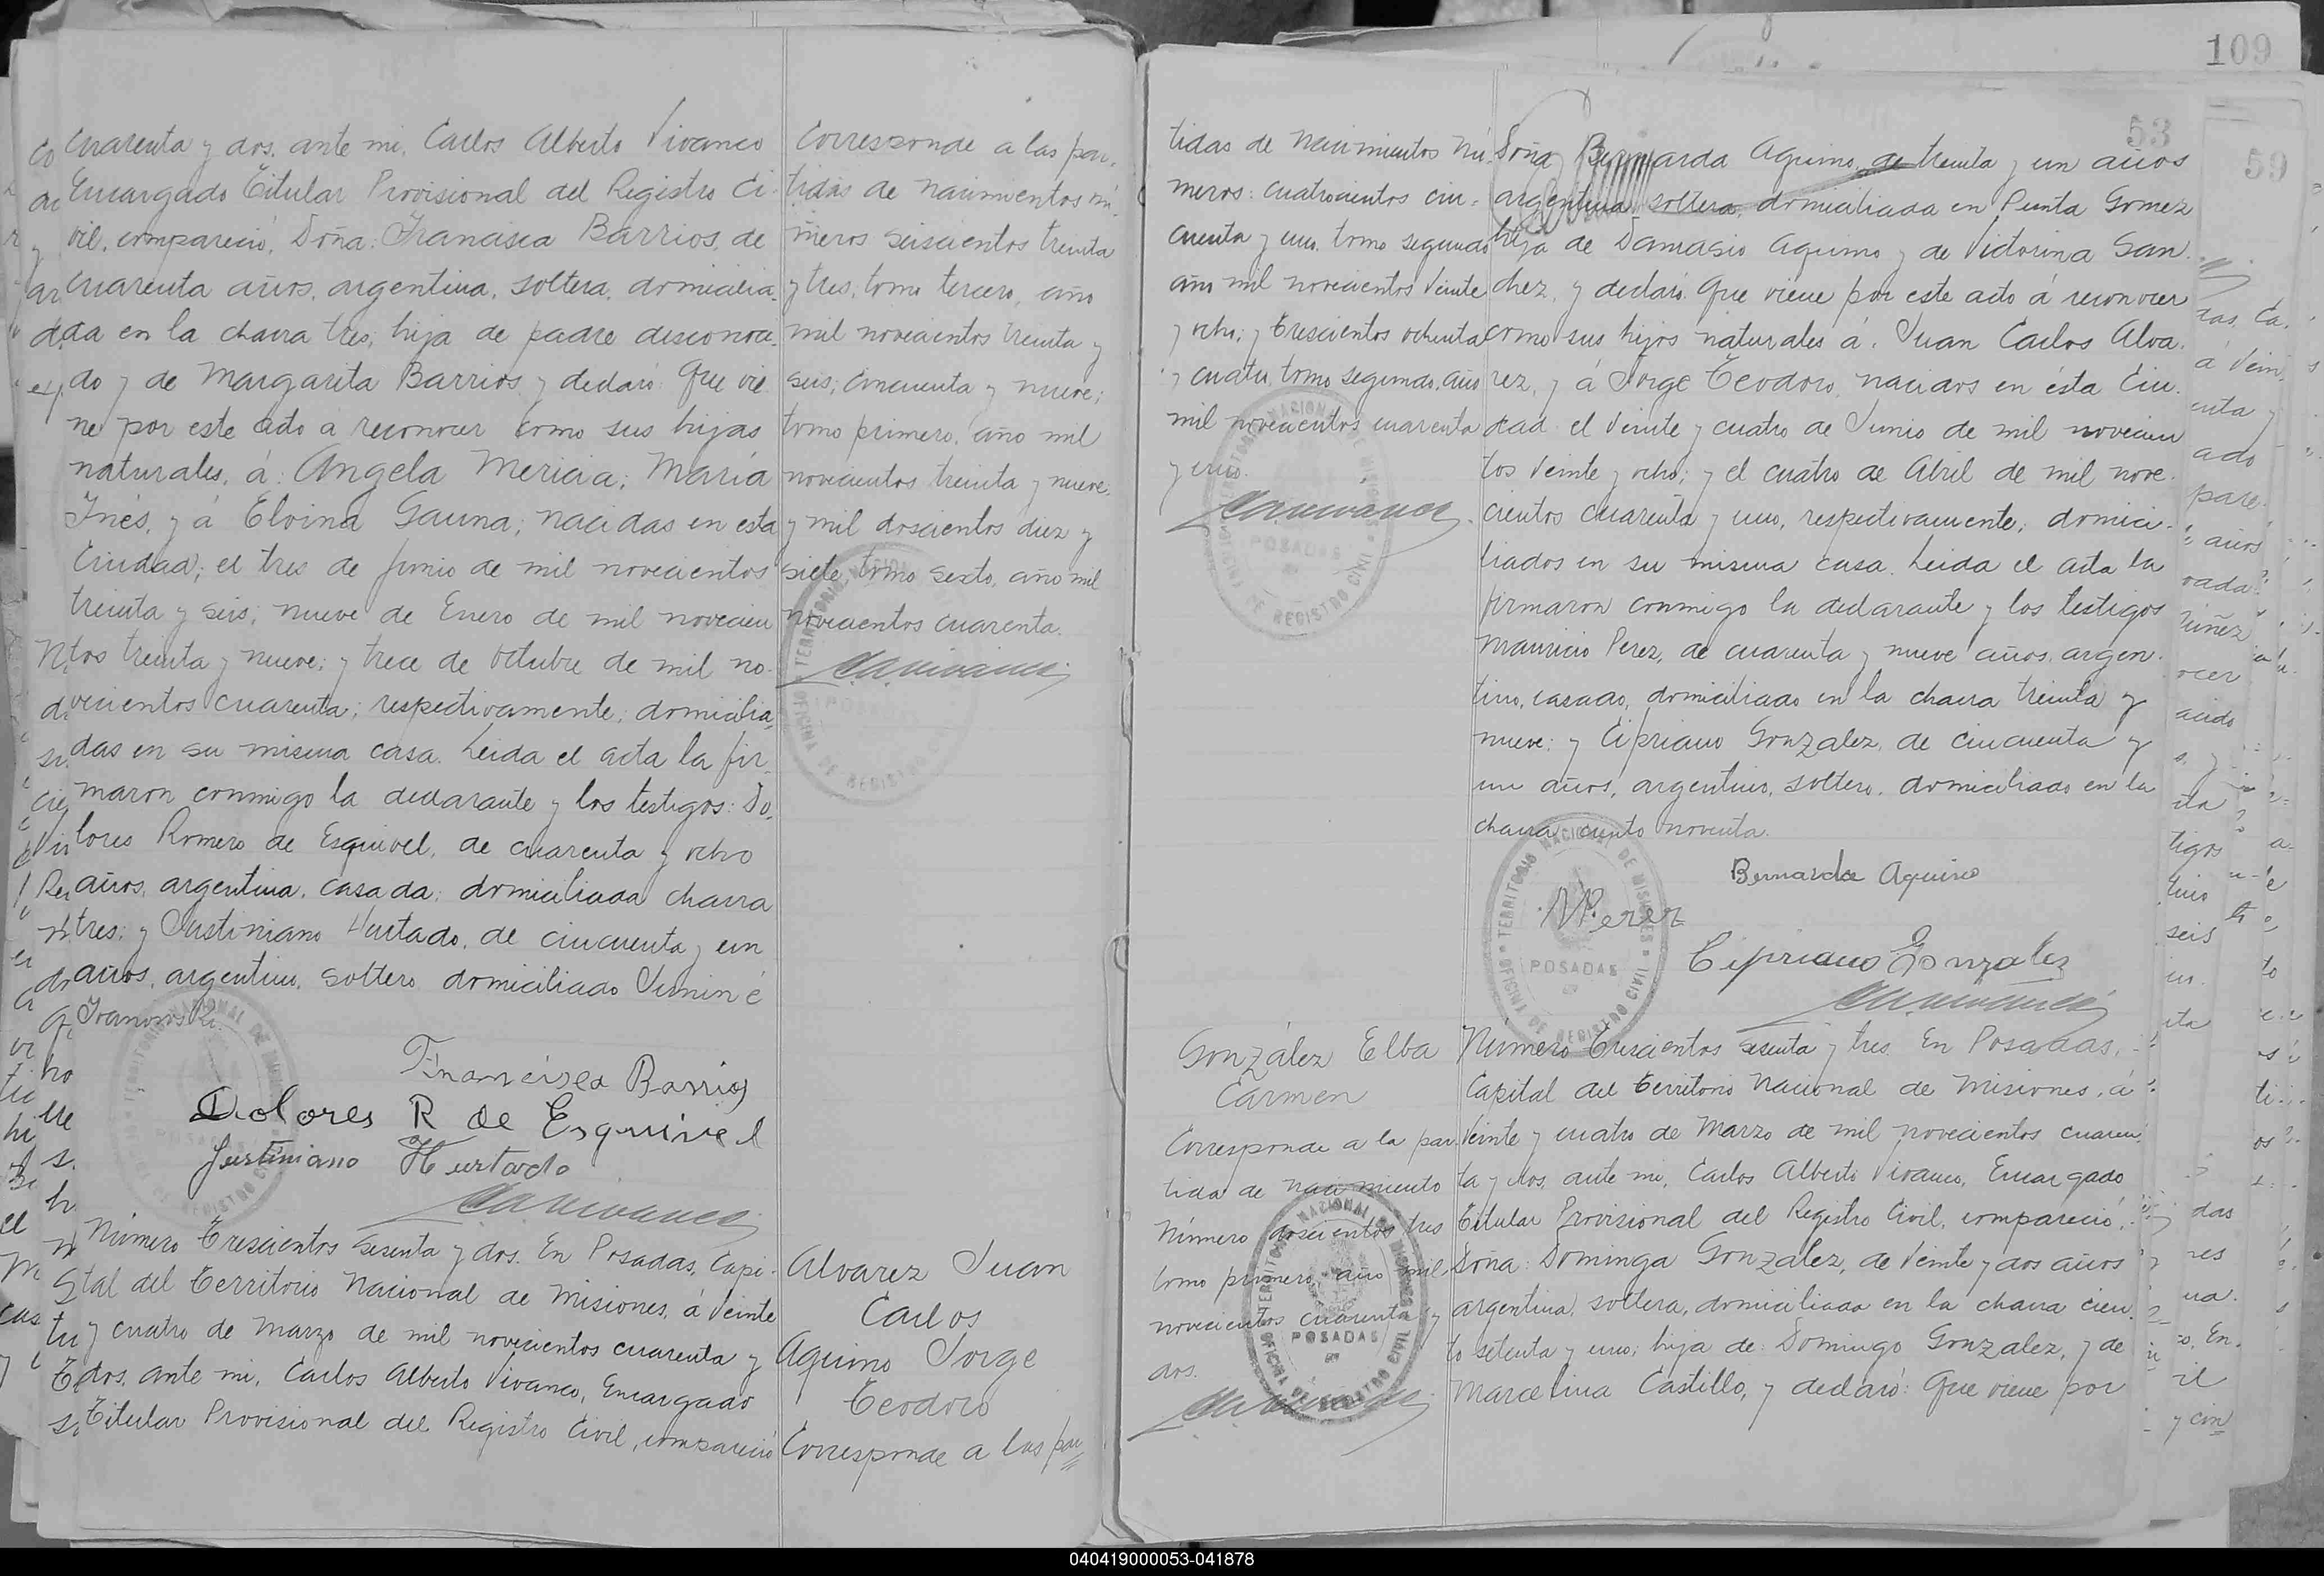 cuarenta y dos, ante mi, Carlos Alberto Vivanco
Encargado Titular Provisional del Registro Ci-
vil, compareció, Doña: Francisca Barrios, de
cuarenta años, argentina, soltera, domicilia-
da en la chacra tres; hija de padre desconoci-
do y de Margarita Barrios y declaró: Que vie-
ne por este acto á reconocer como sus hijas
naturales, á: Angela Mericia; María
Inés, y á Elvina Gauna; nacidas en esta
Ciudad; el tres de Junio de mil novecientos
treinta y seis; nueve de Enero de mil novecien
tos treinta y nueve; y trece de octubre de mil no-
vecientos cuarenta; respectivamente; domicilia-
das en su misma casa. Leida el acta la fir-
maron conmigo la declarante y los testigos: Do-
lores Romero de Esquivel, de cuarenta y ocho
años, argentina, casada; domiciliada chacra
tres; y Justiniano Hurtado, de cincuenta y un
años, argentino, soltero domiciliado Junin é
Ivanowski.
Francisca Barrios
Dolores R de Esquivel
Justiniano Hurtado
Número Trescientos sesenta y dos. En Posadas, Capi-
tal del Territorio Nacional de Misiones, á veinte
y cuatro de Marzo de mil novecientos cuarenta y
dos, ante mi, Carlos Alberto Vivanco, Encargado
Titular Provisional del Registro Civil, compareció
Corresponde a las par-
tidas de nacimientos nú-
meros seiscientos treinta
y tres, tomo tercero, año
mil novecientos treinta y
seis; cincuenta y nueve;
tomo primero, año mil
novecientos treinta y nueve;
y mil doscientos diez y
siete, tomo sexto, año mil
novecientos cuarenta.
Alvarez Juan
Carlos
Aquino Jorge
Teodoro
Corresponde a las par
109
53
59
tidas de nacimientos nú-
meros: cuatrocientos cin-
cuenta y uno, tomo segundo
año mil novecientos veinte
y ocho; y trescientos ochenta
y cuatro, tomo segundo, año
mil novecientos cuarenta
y uno.
Doña Bernarda Aquino, de treinta y un años
argentina, soltera, domiciliada en Punta Gomez
hija de Damasio Aquino y de Victorina San-
chez, y declaró: Que viene por este acto á reconocer
como sus hijos naturales á: Juan Carlos Alva-
rez, y á Jorge Teodoro, nacidos en ésta Ciu-
dad el veinte y cuatro de Junio de mil novecien
tos veinte y ocho; y el cuatro de Abril de mil nove-
cientos cuarenta y uno, respectivamente; domici-
liados en su misma casa. Leida el acta la
firmaron conmigo la declarante y los testigos
Mauricio Perez, de cuarenta y nueve años, argen-
tino, casado, domiciliado en la chacra treinta y
nueve; y Cipriano Gonzalez, de cincuenta y
un años, argentino, soltero, domiciliado en la
chacra ciento noventa.
Bernarda Aquino
MPerez
Cipriano Gonzalez
TERRITORIO NACIONAL DE MISIONES
POSADAS
OFICINA DE REGISTRO CIVIL
González Elba
Carmen
Corresponde a la par-
tida de nacimiento
número doscientos tres
tomo primero, año mil
novecientos cuarenta y
dos.
Número Trescientos sesenta y tres. En Posadas,
Capital del Territorio Nacional de Misiones, á
veinte y cuatro de Marzo de mil novecientos cuaren-
ta y dos, ante mi, Carlos Alberto Vivanco, Encargado
Titular Provisional del Registro Civil, compareció,
Doña: Dominga González, de veinte y dos años
argentina, soltera, domiciliada en la chacra cien-
to setenta y uno; hija de: Domingo Gonzalez, y de
Marcelina Castillo, y declaró: Que viene por
040419000053-041878